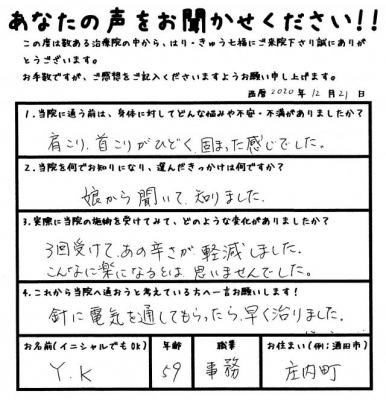 あなたの声をお聞かせください!!
この度は数ある治療院の中から、はり・きゅう七福にご来院下さり誠にありが
とうございます。
お手数ですが、ご感想をご記入くださいますようお願い申し上げます。
西暦2020年12月21日
1.当院に通う前は、身体に対してどんな悩みや不安・不満がありましたか?
肩こり、首こりがひどく、固まった感じでした。
2.当院を何でお知りになり、選んだきっかけは何ですか?
娘から聞いて、知りました。
3.実際に当院の施術を受けてみて、どのような変化がありましたか?
3回受けて、あの辛さが、軽減しました。
こんなに楽になるとは、思いませんでした。
4.これから当院へ通おうと考えている方へ一言お願いします!
針に電気を通してもらったら、早く治りました。
お名前(イニシャルでもOK)
年齢
職業
お住まい(例:酒田市)
Y.K
59
事務
庄内町